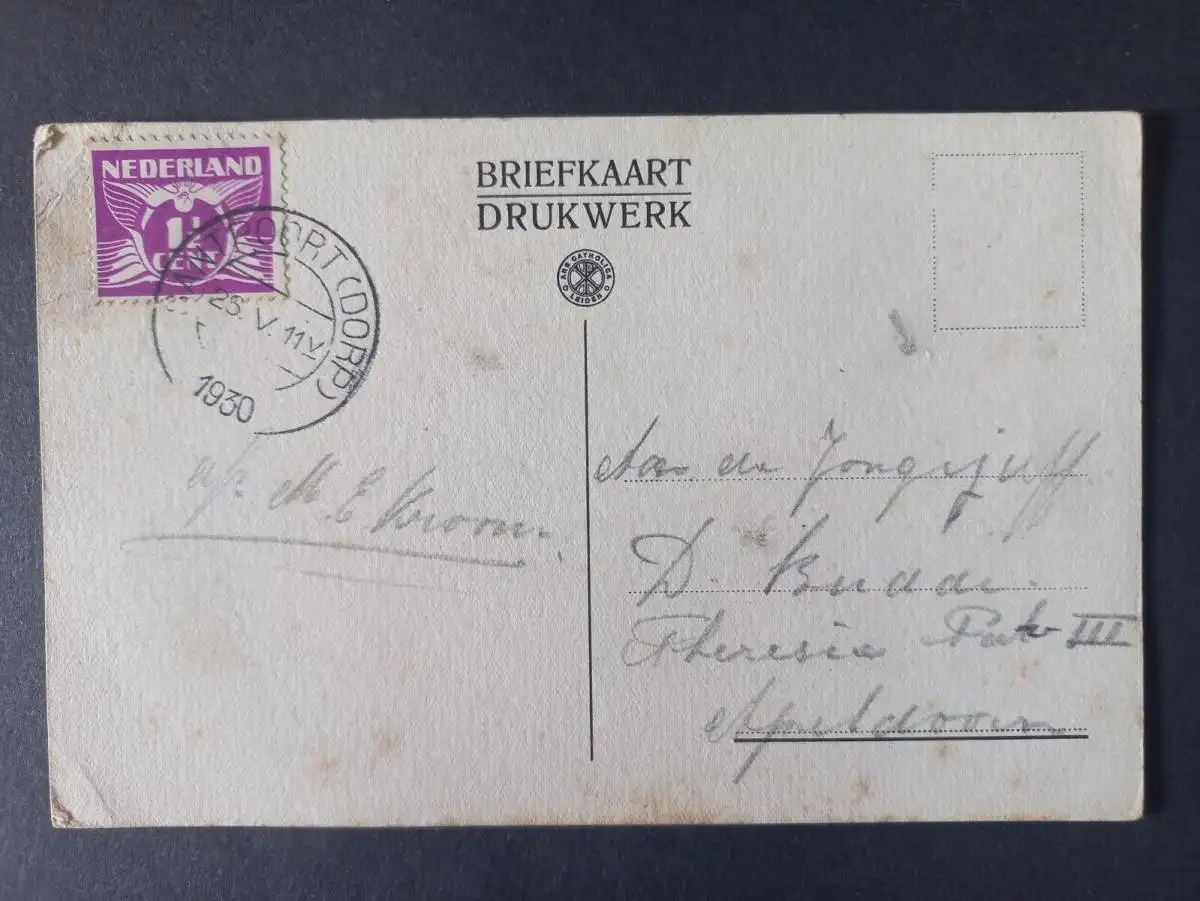 NEDERLAND
1½
CENT
SANTPOORT (DORP)
25. V. 11 V
1930
BRIEFKAART
DRUKWERK
ARS CATHOLICA
LEIDEN
afz. M E Kroon.
Aan de Jongejuff
D. Budde.
Theresia Park III
Apeldoorn